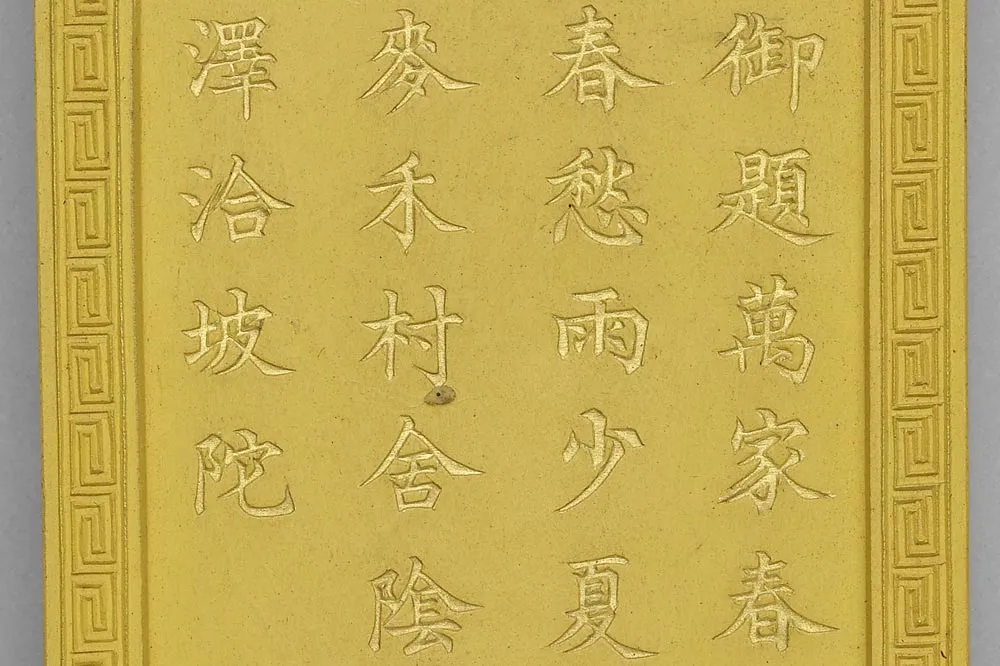 御題萬家春
春愁雨少夏
麥禾村舍陰
澤洽坡陀